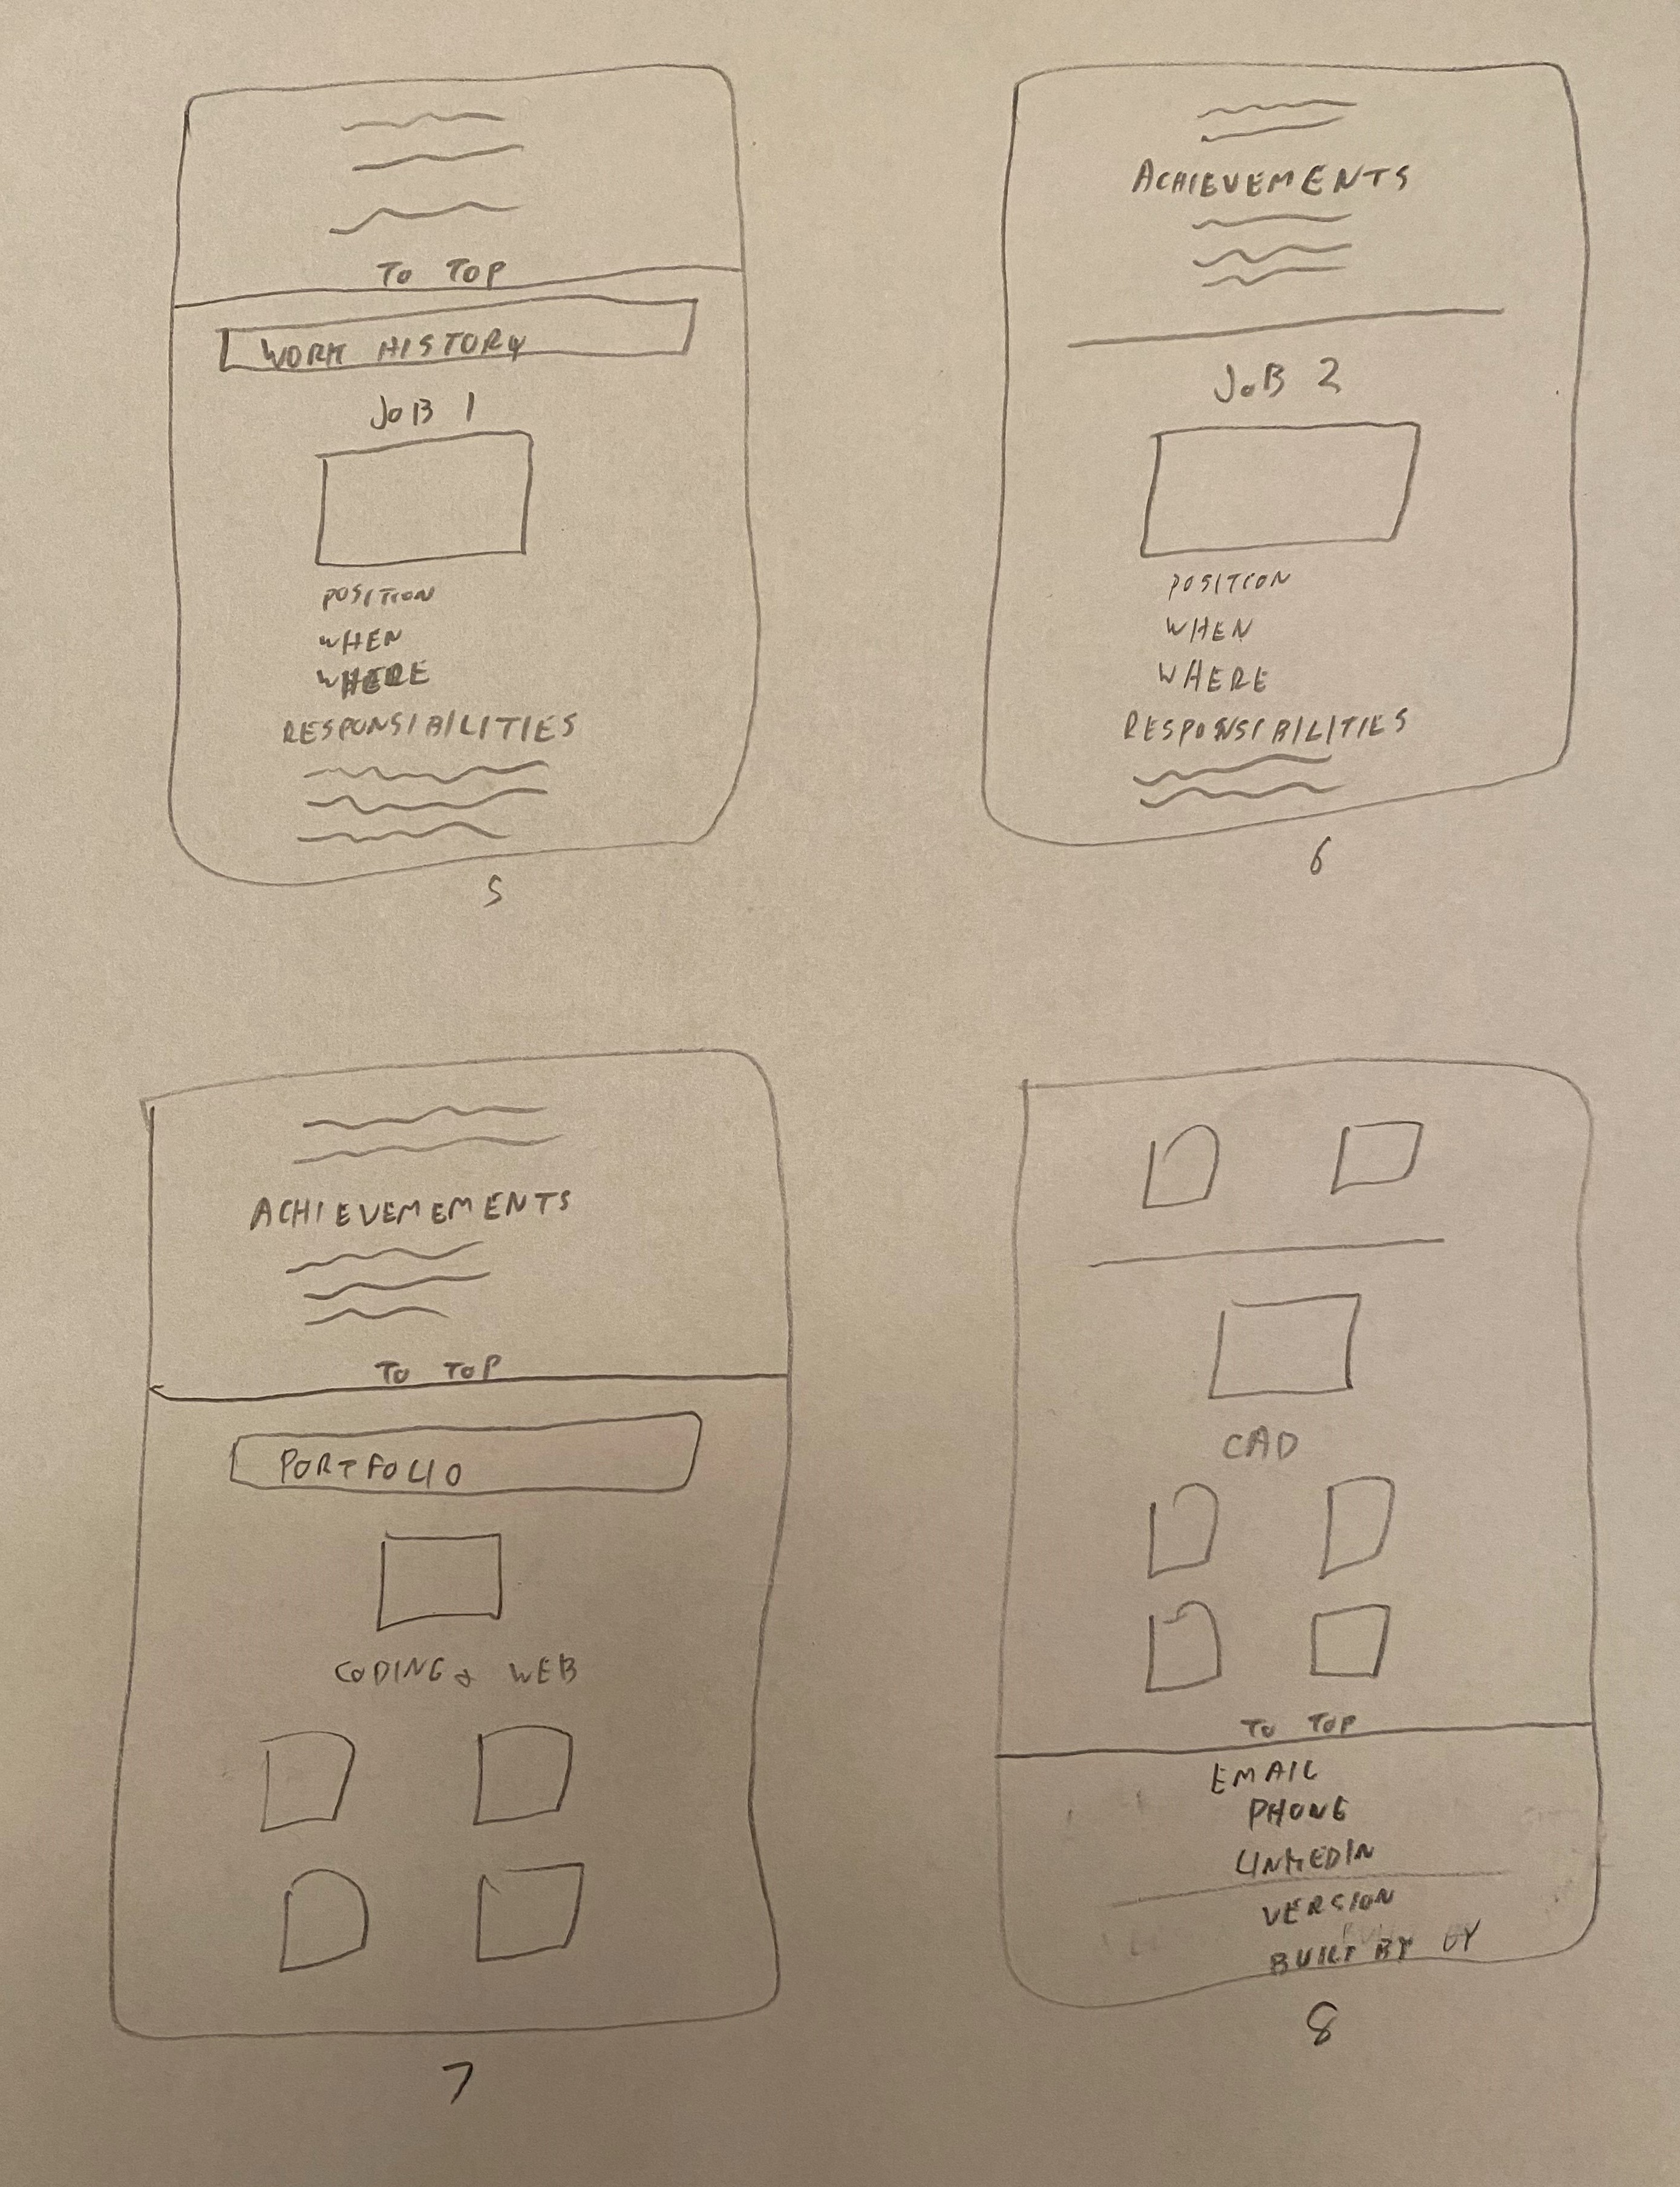 TO TOP
WORK HISTORY
JOB 1
POSITION
WHEN
WHERE
RESPONSIBILITIES
5
ACHIEVEMENTS
JOB 2
POSITION
WHEN
WHERE
RESPONSIBILITIES
6
ACHIEVEMEMENTS
TO TOP
PORTFOLIO
CODING & WEB
7
CAD
TO TOP
EMAIL
PHONE
LINKEDIN
VERSION
BUILT BY
8